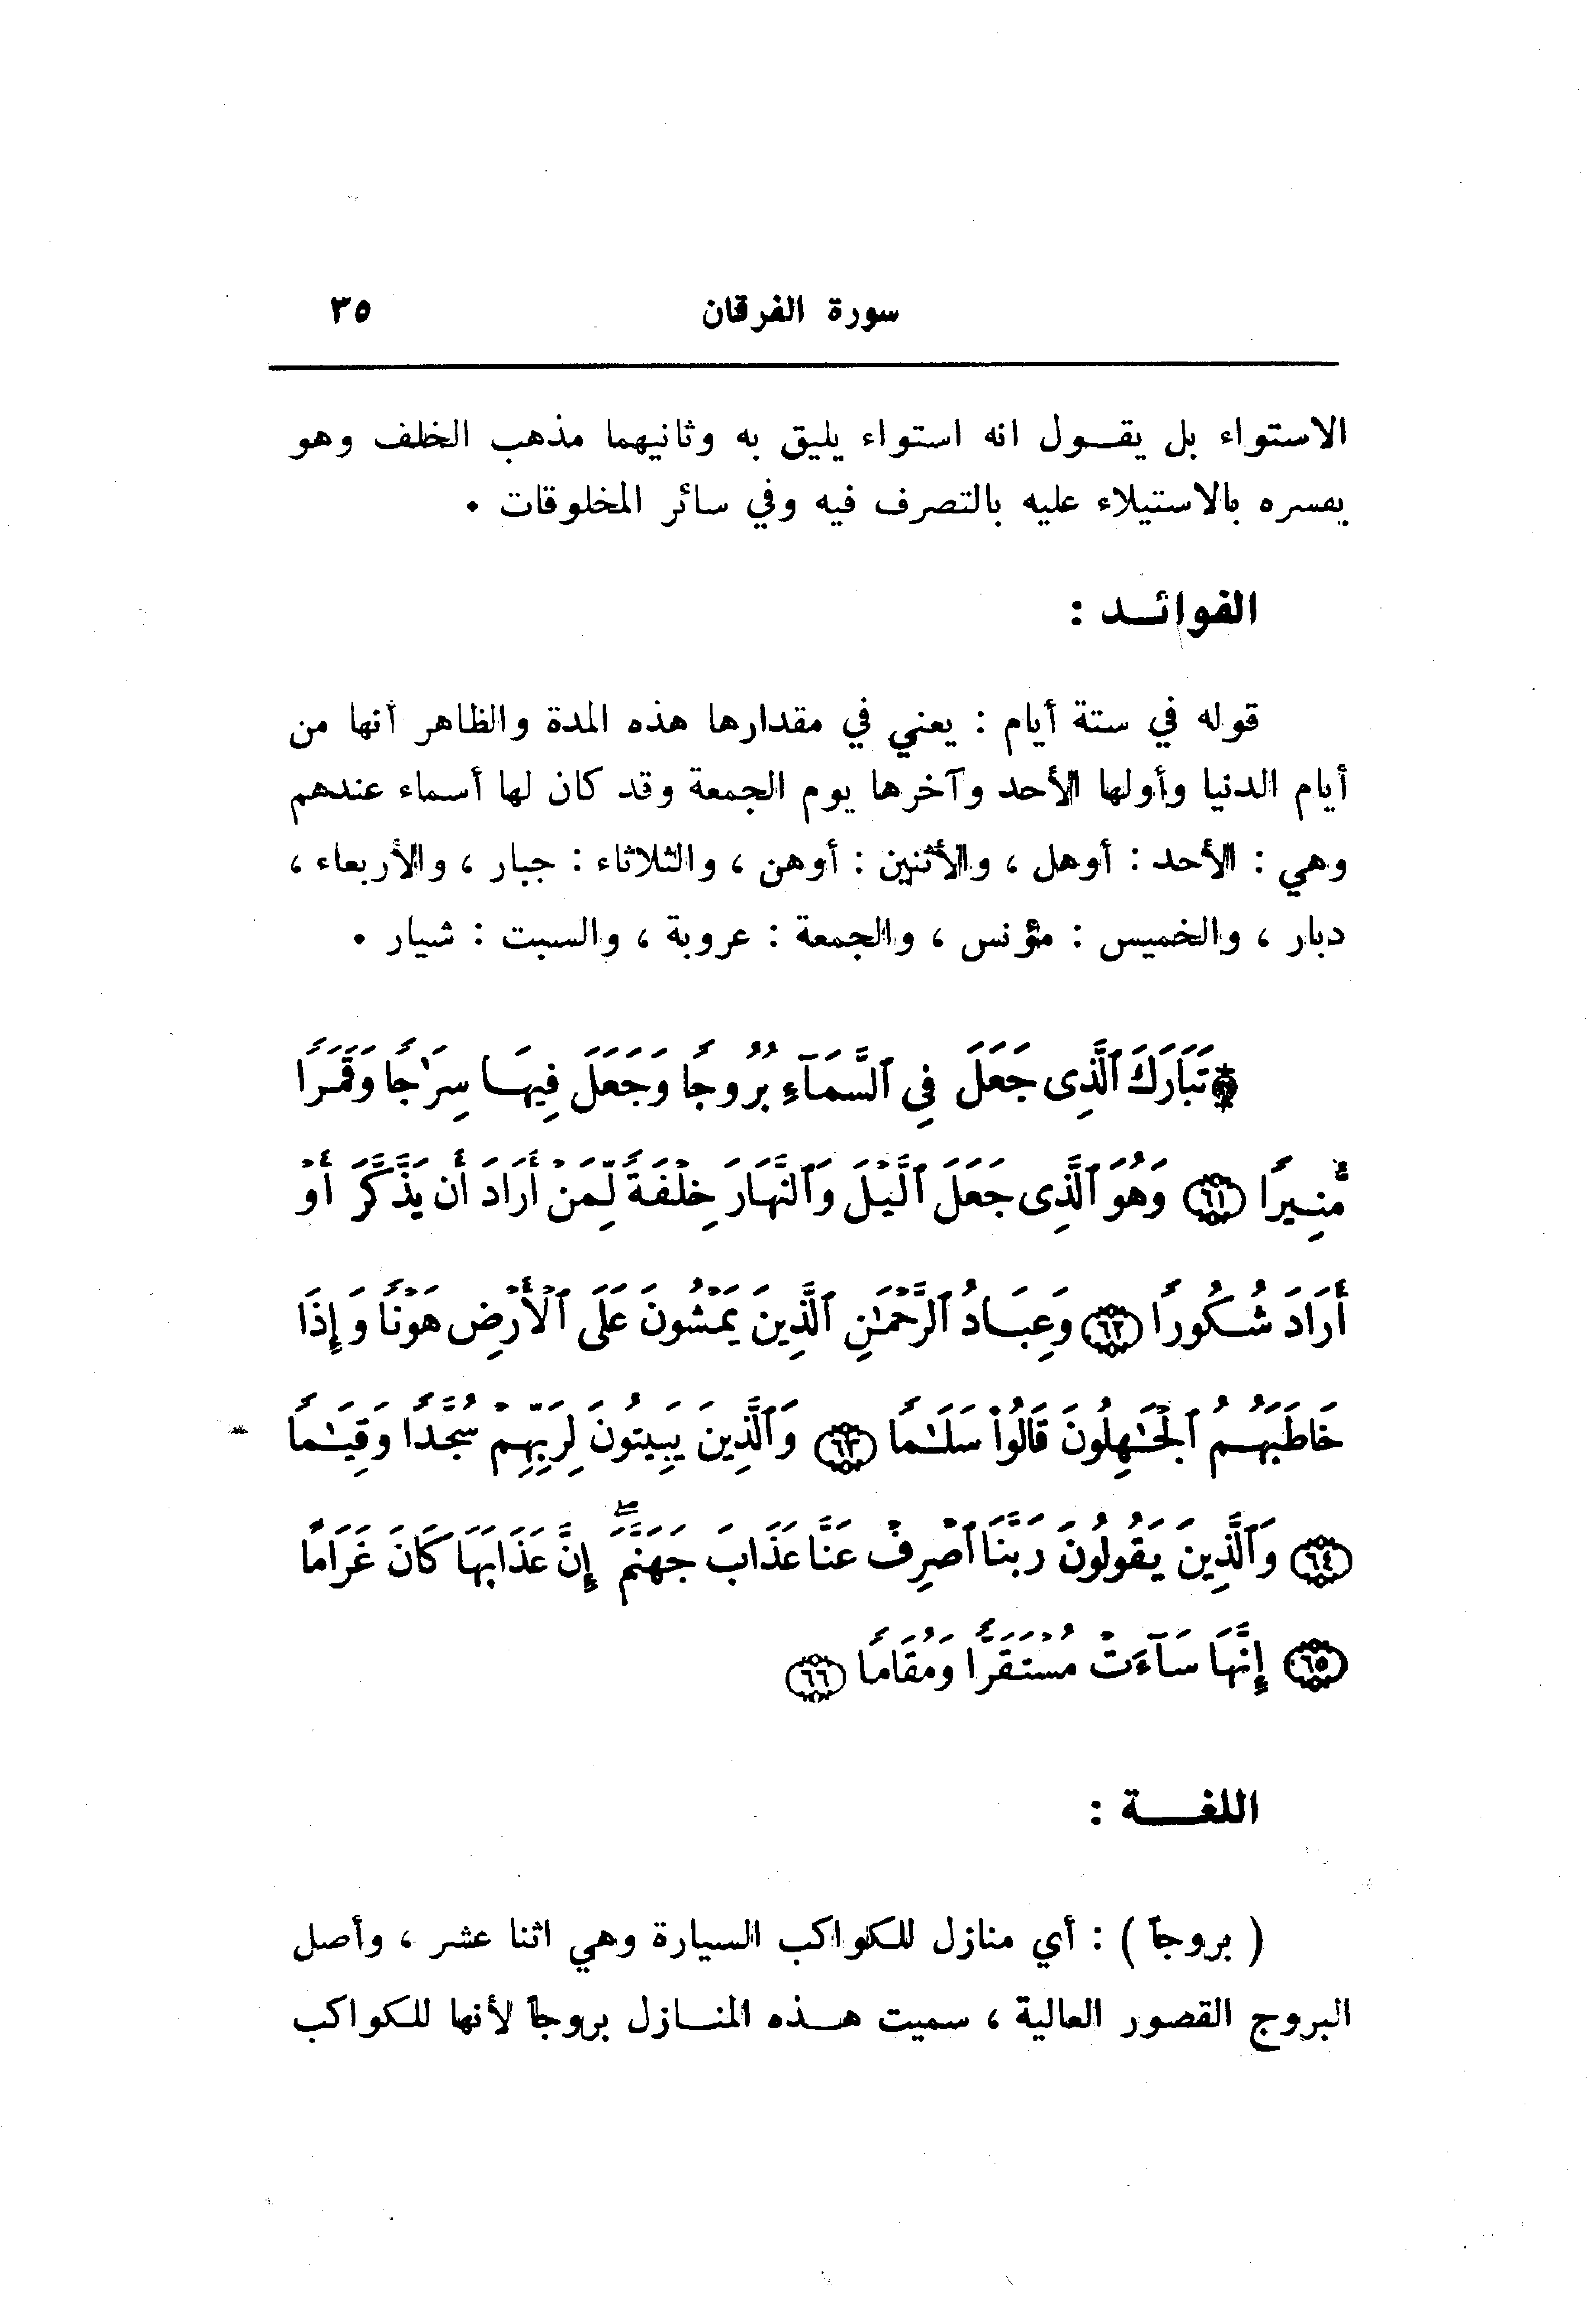 سورة الفرقان ٣٥
الاستواء بل يقـــول انه استواء يليق به وثانيهما مذهب الخلف وهو
يفسره بالاستيلاء عليه بالتصرف فيه وفي سائر المخلوقات •
الفوائـــد :
قوله في ستة أيام : يعني في مقدارها هذه المدة والظاهر أنها من
أيام الدنيا وأولها الأحد وآخرها يوم الجمعة وقد كان لها أسماء عندهم
وهي : الأحد : أوهل ، والأثنين : أوهن ، والثلاثاء : جبار ، والأربعاء ،
دبار ، والخميس : مؤنس ، والجمعة : عروبة ، والسبت : شيار •
تَبَارَكَ ٱلَّذِى جَعَلَ فِى ٱلسَّمَآءِ بُرُوجًا وَجَعَلَ فِيهَا سِرَٰجًا وَقَمَرًا
مُّنِيرًا ﴿٦١﴾ وَهُوَ ٱلَّذِى جَعَلَ ٱلَّيْلَ وَٱلنَّهَارَ خِلْفَةً لِّمَنْ أَرَادَ أَن يَذَّكَّرَ أَوْ
أَرَادَ شُكُورًا ﴿٦٢﴾ وَعِبَادُ ٱلرَّحْمَٰنِ ٱلَّذِينَ يَمْشُونَ عَلَى ٱلْأَرْضِ هَوْنًا وَإِذَا
خَاطَبَهُمُ ٱلْجَٰهِلُونَ قَالُوا۟ سَلَٰمًا ﴿٦٣﴾ وَٱلَّذِينَ يَبِيتُونَ لِرَبِّهِمْ سُجَّدًا وَقِيَٰمًا
﴿٦٤﴾ وَٱلَّذِينَ يَقُولُونَ رَبَّنَا ٱصْرِفْ عَنَّا عَذَابَ جَهَنَّمَ ۖ إِنَّ عَذَابَهَا كَانَ غَرَامًا
﴿٦٥﴾ إِنَّهَا سَآءَتْ مُسْتَقَرًّا وَمُقَامًا ﴿٦٦﴾
اللغـــــة :
( بروجاً ) : أي منازل للكواكب السيارة وهي اثنا عشر ، وأصل
البروج القصور العالية ، سميت هـــذه المنـــازل بروجاً لأنها للكواكب